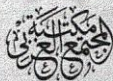 مكتبة
المجمع العربي